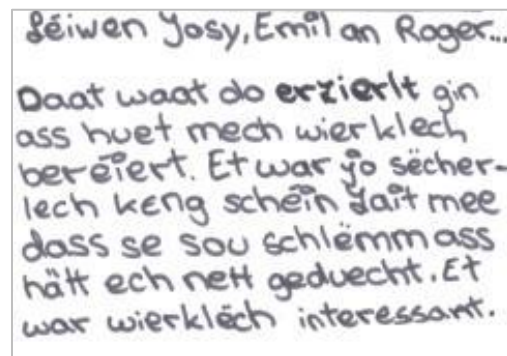 Léiwen Josy, Emil an Roger...
Daat waat do erzierlt gin
ass huet mech wierklech
beréiert. Et war jo sécher-
lech keng schéin Zäit mee
dass se sou schlëmm ass
hätt ech nett geduecht. Et
war wierklëch interessant.